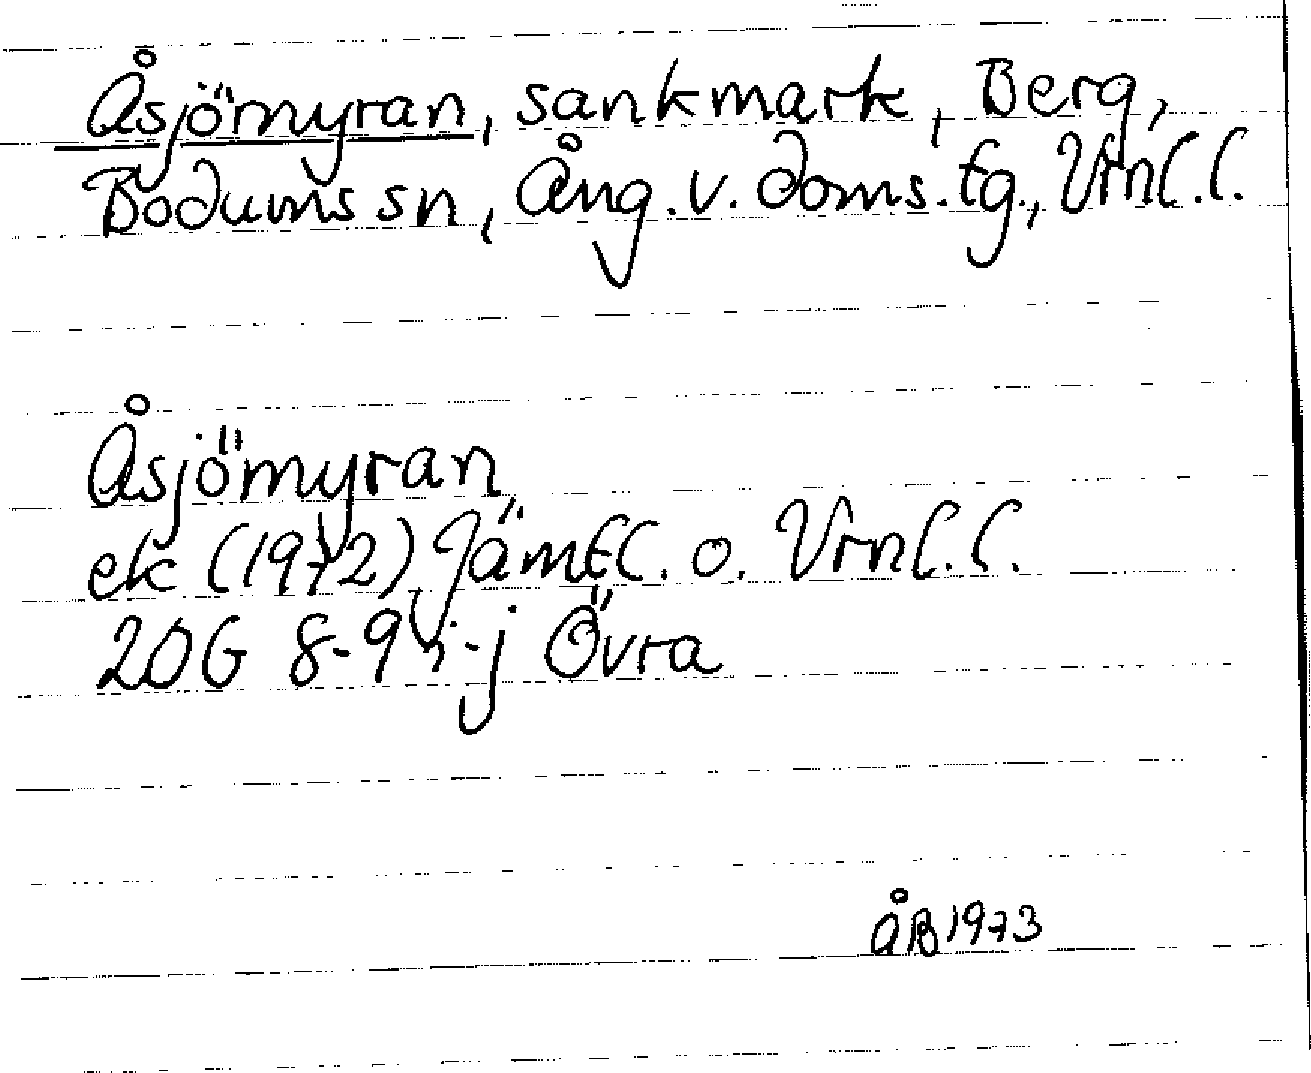 Åsjömyran, sankmark, Berg,
Bodums sn, Ång. v. doms. tg., Vrnl. l.
Åsjömyran
ek (1972) Jämtl. o. Vrnl. l.
20G 8-9 i-j Övra
ÅB 1973